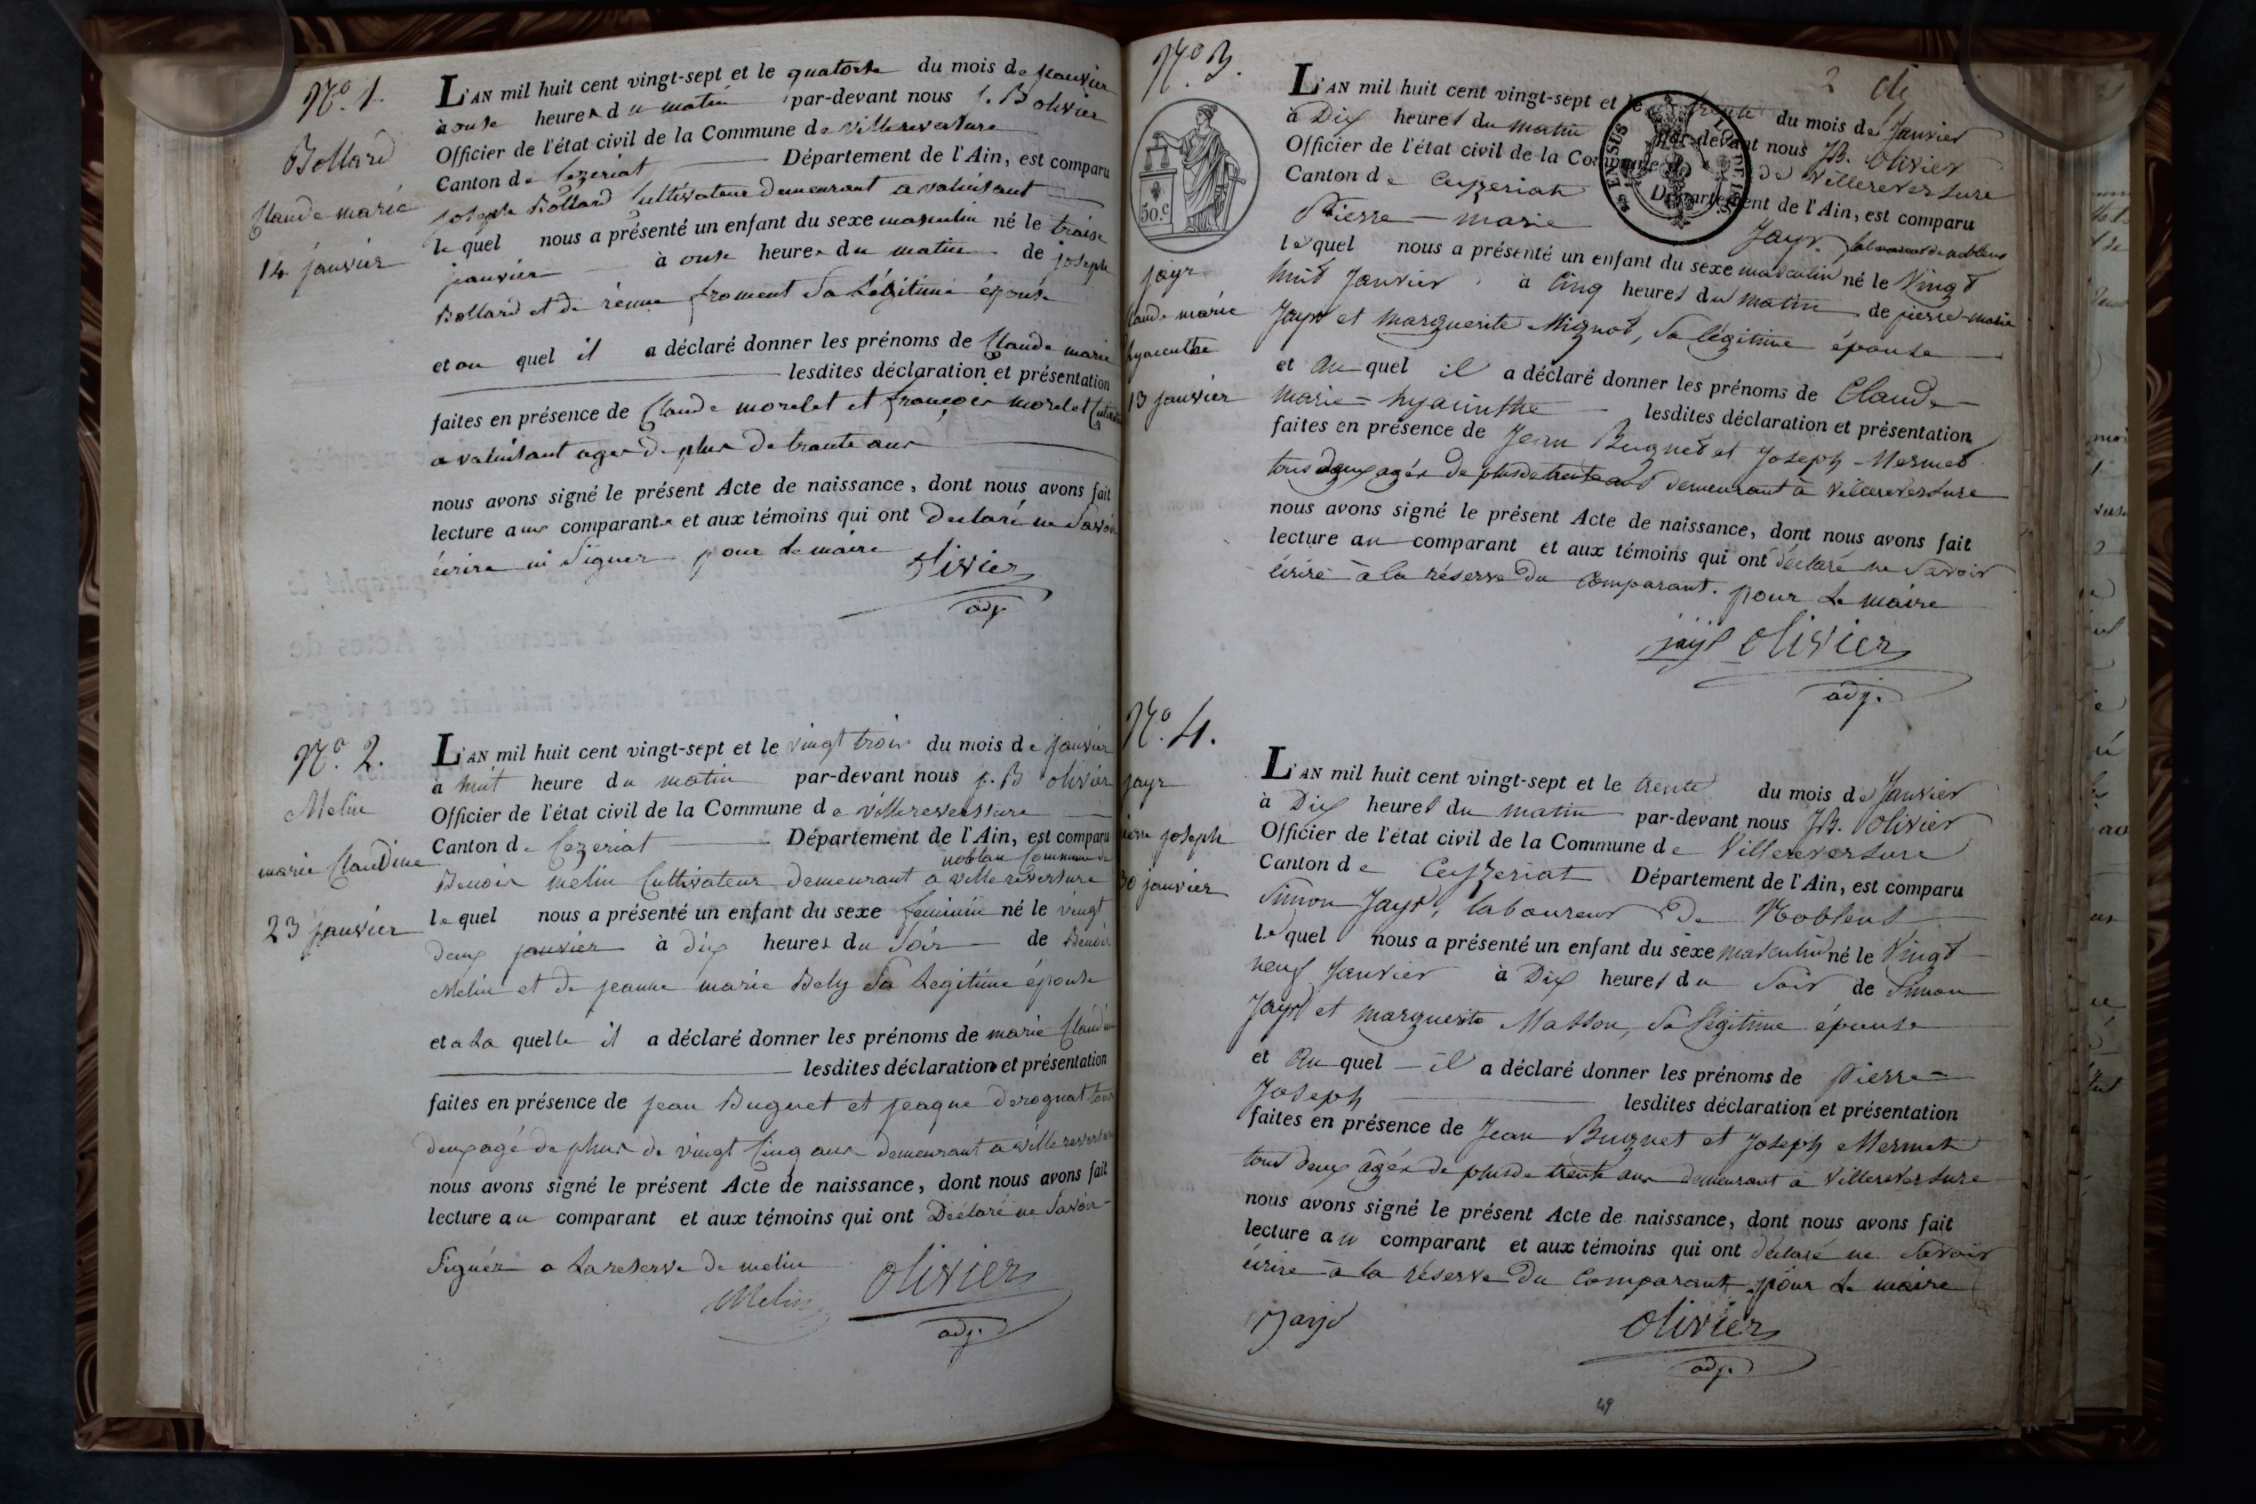 N.º 1.
Bollard
Claude marie
14 janvier
L'AN mil huit cent vingt-sept et le quatorse du mois de janvier
à onse heures du matin par-devant nous J. B olivier
Officier de l'état civil de la Commune de villereversure
Canton de Cezeriat Département de l'Ain, est comparu
joseph Bollard Cultivateur demeurant a valuisant
le quel nous a présenté un enfant du sexe masculin né le traise
janvier à onse heures du matin de joseph
Bollard et de reine froment sa Légitime épouse
et au quel il a déclaré donner les prénoms de Claude marie
lesdites déclaration et présentation
faites en présence de Claude morelet et françois morelet
a valuisant ages de plus de trante ans
nous avons signé le présent Acte de naissance, dont nous avons fait
lecture aux comparants et aux témoins qui ont declaré ne Savoir
écrire ni Signer pour Le maire
olivier
adj.
N.º 2.
Melin
marie Claudine
23 janvier
L'AN mil huit cent vingt-sept et le vingt trois du mois de janvier
à huit heure du matin par-devant nous j. B olivier
Officier de l'état civil de la Commune de villereverssure
Canton de Cezeriat Département de l'Ain, est comparu
noblan Commune de
Benoir melin Cultivateur demeurant a villereversure
le quel nous a présenté un enfant du sexe feminin né le vingt
deux janvier à dix heures du Soir de Benoir
Melin et de jeanne marie Bely Sa Legitime épouse
et a La quelle il a déclaré donner les prénoms de marie Claudine
lesdites déclaration et présentation
faites en présence de jean Buguet et jeaque derognat tous
deux agé de plus de vingt Cinq ans demeurant a villereversure
nous avons signé le présent Acte de naissance, dont nous avons fait
lecture au comparant et aux témoins qui ont Déclaré ne Savoir
Signer a La reserve de melin
Melin olivier
adj.
N.º 3.
2
50.C
EN SUS
jayr
Claude marie
hyacinthe
13 janvier
L'AN mil huit cent vingt-sept et le trente du mois de Janvier
à Dix heures du matin par-devant nous JB. Olivier
Officier de l'état civil de la Commune de Villereversure
Canton de Ceyzeriat Département de l'Ain, est comparu
Pierre - marie Jayr, laboureur de noblens
le quel nous a présenté un enfant du sexe masculin né le Vingt
huit Janvier à Cinq heures du matin de pierre-marie
Jayr et marguerite Mignot, Sa légitime épouse
et au quel il a déclaré donner les prénoms de Claude
marie = hyacinthe lesdites déclaration et présentation
faites en présence de Jean Buguet et Joseph Mermet
tous deux agés de plus de trente ans demeurant à Villereversure
nous avons signé le présent Acte de naissance, dont nous avons fait
lecture au comparant et aux témoins qui ont déclaré ne Savoir
écrire à la réserve du Comparant. pour Le maire
jayr olivier
adj.
N.º 4.
jayr
pierre joseph
30 janvier
L'AN mil huit cent vingt-sept et le trente du mois de Janvier
à Dix heures du matin par-devant nous JB. Olivier
Officier de l'état civil de la Commune de Villereversure
Canton de Ceyzeriat Département de l'Ain, est comparu
Simon Jayr, laboureur De Noblens
le quel nous a présenté un enfant du sexe masculin né le Vingt
neuf Janvier à Dix heures du Soir de Simon
Jayr et marguerite Masson, Sa légitime épouse
et au quel il a déclaré donner les prénoms de pierre =
Joseph lesdites déclaration et présentation
faites en présence de Jean Buguet et Joseph Mermet
tous deux âgés de plus de trente ans demeurant à Villereversure
nous avons signé le présent Acte de naissance, dont nous avons fait
lecture au comparant et aux témoins qui ont déclaré ne Savoir
écrire à la réserve du Comparant. pour Le maire
olivier
adj.
49